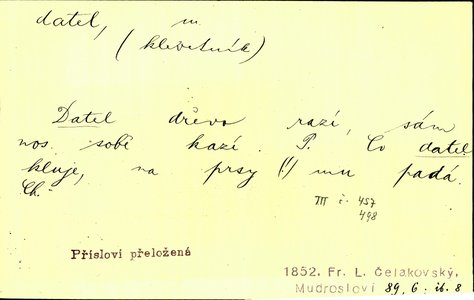 datel, m.
(klevetník)
Datel dřevo razí, sám
nos sobě kazí. P. Co datel
kluje, na prsy (!) mu padá.
Ch.
III č. 457
498
Přísloví přeložená
1852. Fr. L. Čelakovský,
Mudrosloví 89, 6: ib. 8